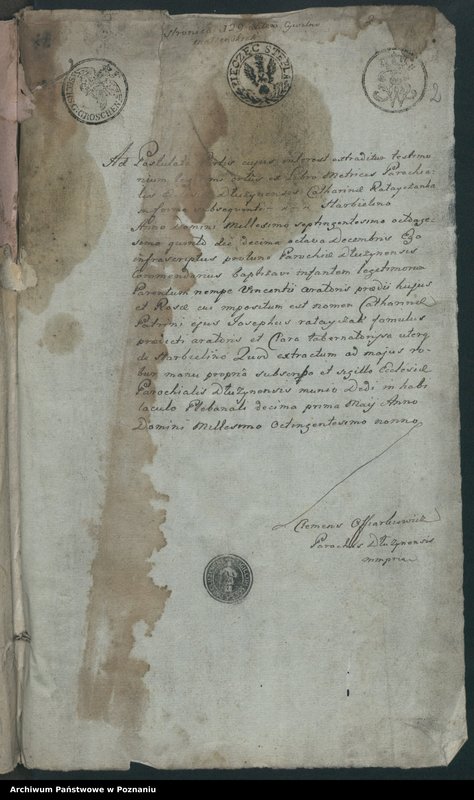 stronica 120
2
GROSCHEN
PIECZEC STEPLA
Ad Postulata cujus interest extraditur testimo
nium ortus ex Libro Metrices Parochia
lis Dłuzynensis Catharinæ Ratayczanka
in forma subsequenti Starbielino
Anno Domini Millesimo septingentesimo octoage-
simo quinto die decima octava Decembris Ego
infrascriptus protunc Parochiæ Dłuzynensis
Commendarius Baptizavi infantem legitimorum
Parentum nempe Vincentii aratoris prædii hujus
et Rosæ cui impositum est nomen Catharinæ
Patrini ejus Josephus ratayczak famulus
aratoris et Clara tabernatoryssa uterq
de Starbielino Quod extractum ad majus ro
bur manu propria subscripsi et sigillo Ecclesiæ
Parochialis Dłuzynensis munivi Dedi in habi
taculo Plebanali decima prima Maij Anno
Domini Millesimo Octingentesimo nonno
Clemens
Parochus Dłuzynensis
mmpria
Archiwum Państwowe w Poznaniu